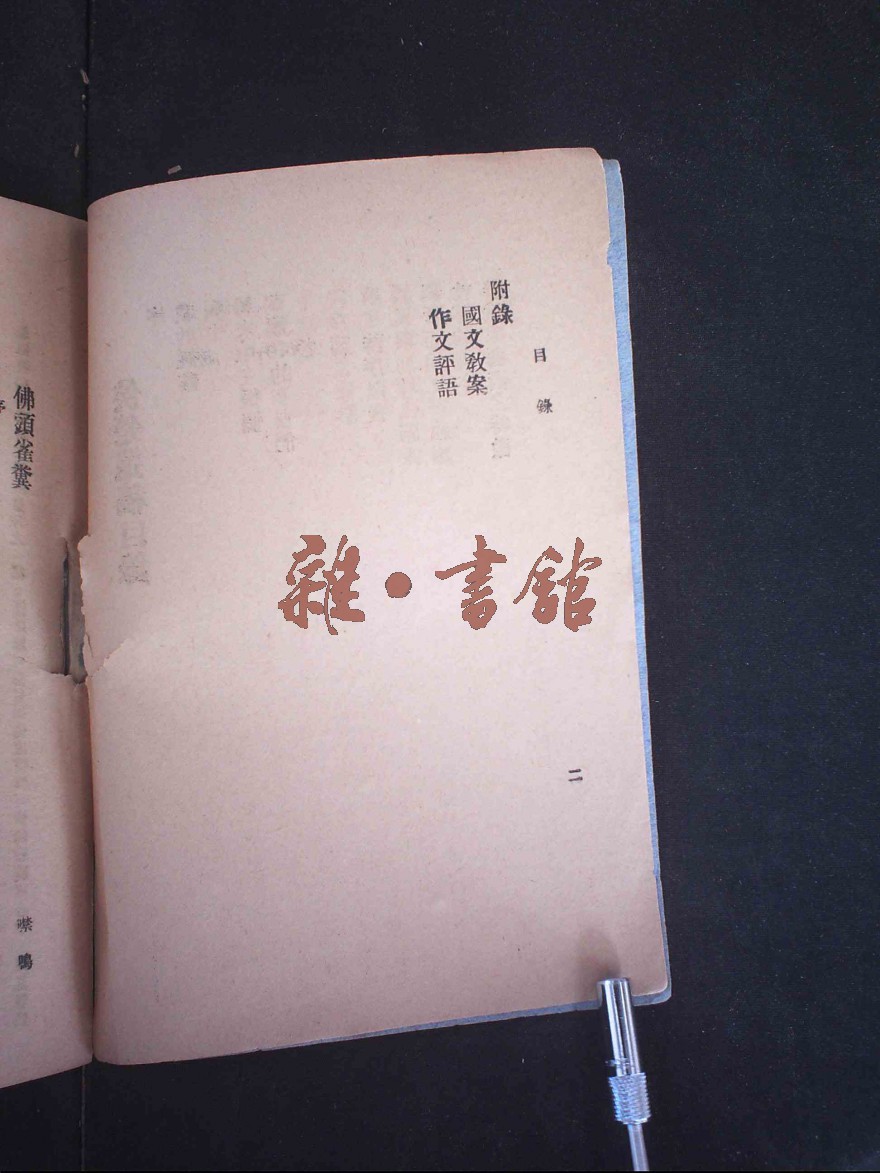 目錄
二
附錄
國文敎案
作文評語
佛頭雀糞
噤鳴
雜•書館